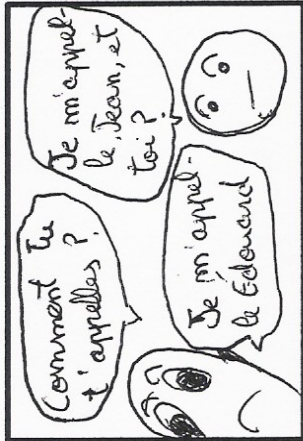 Comment tu
t'appelles ?
Je m'appel-
le Jean, et
toi ?
Je m'appel-
le Édouard